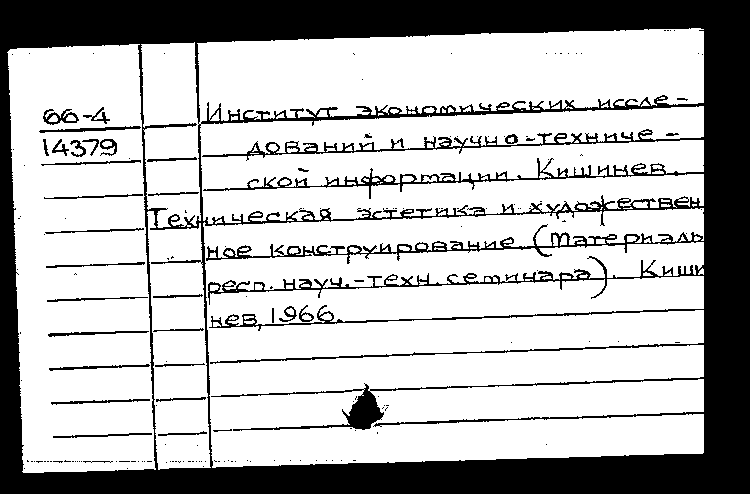 66-4 Институт экономических иссле-
14379 дований и научно-техниче-
ской информации. Кишинев.
Техническая эстетика и художествен
ное конструирование. (Материалы
респ. науч.-техн. семинара). Киши
нев, 1966.